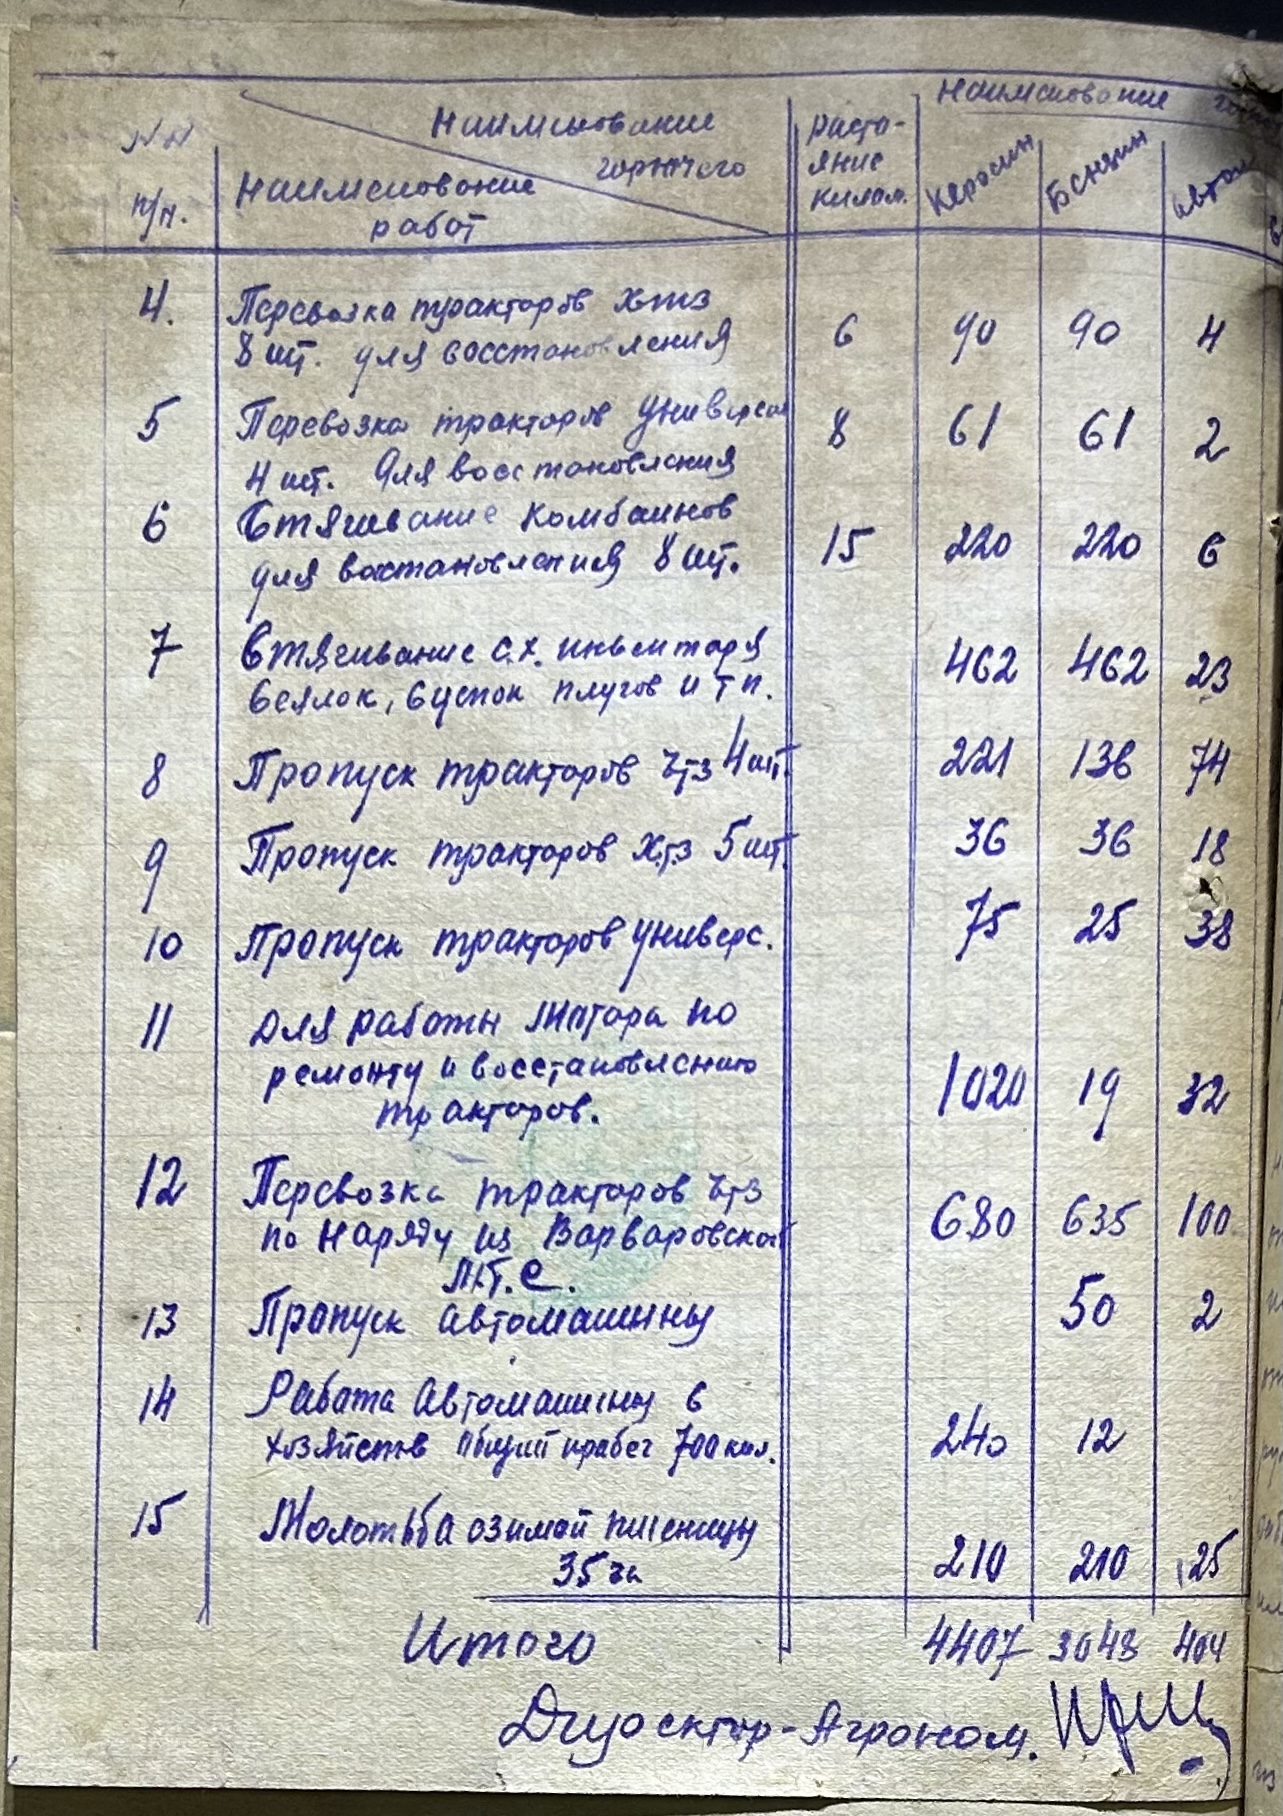 Наименование
NN п/н.
Наименование горючего
Наименование работ
расто-
яние
килом.
Керосин
Бензин
Автол
4. Перевозка тракторов хтз
8 шт. для восстановления 6 90 90 4
5 Перевозка тракторов Универсал 8 61 61 2
4 шт. для восстановления
6 Втягивание комбаинов
для востановления 8 шт. 15 220 220 6
7 Втягивание с.х. инвентаря 462 462 23
веялок, плугов и т п.
8 Пропуск тракторов чтз 4 шт. 221 136 74
9 Пропуск тракторов Хтз 5 шт. 36 36 18
10 Пропуск тракторов универс. 75 25 38
11 Для работы мотора по
ремонту и восстановлению
тракторов. 1020 19 32
12 Перевозка тракторов чтз
по наряду из Варваровской 680 635 100
М.Т.С.
13 Пропуск автомашины 50 2
14 Работа автомашины в
хозяйств общий пробег 700 кил. 240 12
15 Молотьба озимой пшеницы
35 га 210 210 25
Итого 4407 3043 404
Директор-Агроном.